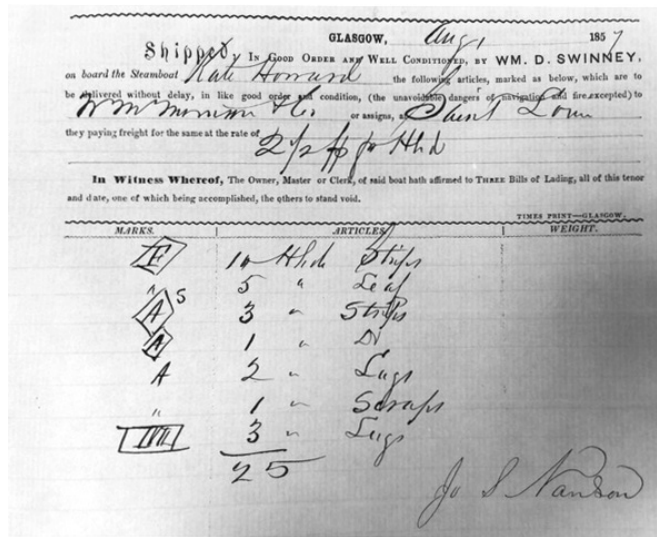 GLASGOW, Aug 1 1857
Shipped, IN GOOD ORDER AND WELL CONDITIONED, BY WM. D. SWINNEY,
on board the Steamboat Kate Howard the following articles, marked as below, which are to
be delivered without delay, in like good order and condition, (the unavoidable dangers of navigation and fire excepted) to
Wm Morrison & Co or assigns, at Saint Louis
they paying freight for the same at the rate of
2 1/2 $ pr Hhd
In Witness Whereof, The Owner, Master or Clerk, of said boat hath affirmed to THREE Bills of Lading, all of this tenor
and date, one of which being accomplished, the others to stand void.
TIMES PRINT—GLASGOW.
MARKS. ARTICLES. WEIGHT.
F 10 Hhds Strips
" 5 " Leaf
A S 3 " Strips
A 1 " Do
A 2 " Lugs
" 1 " Scraps
3 " Lugs
25
Jo S Nanson